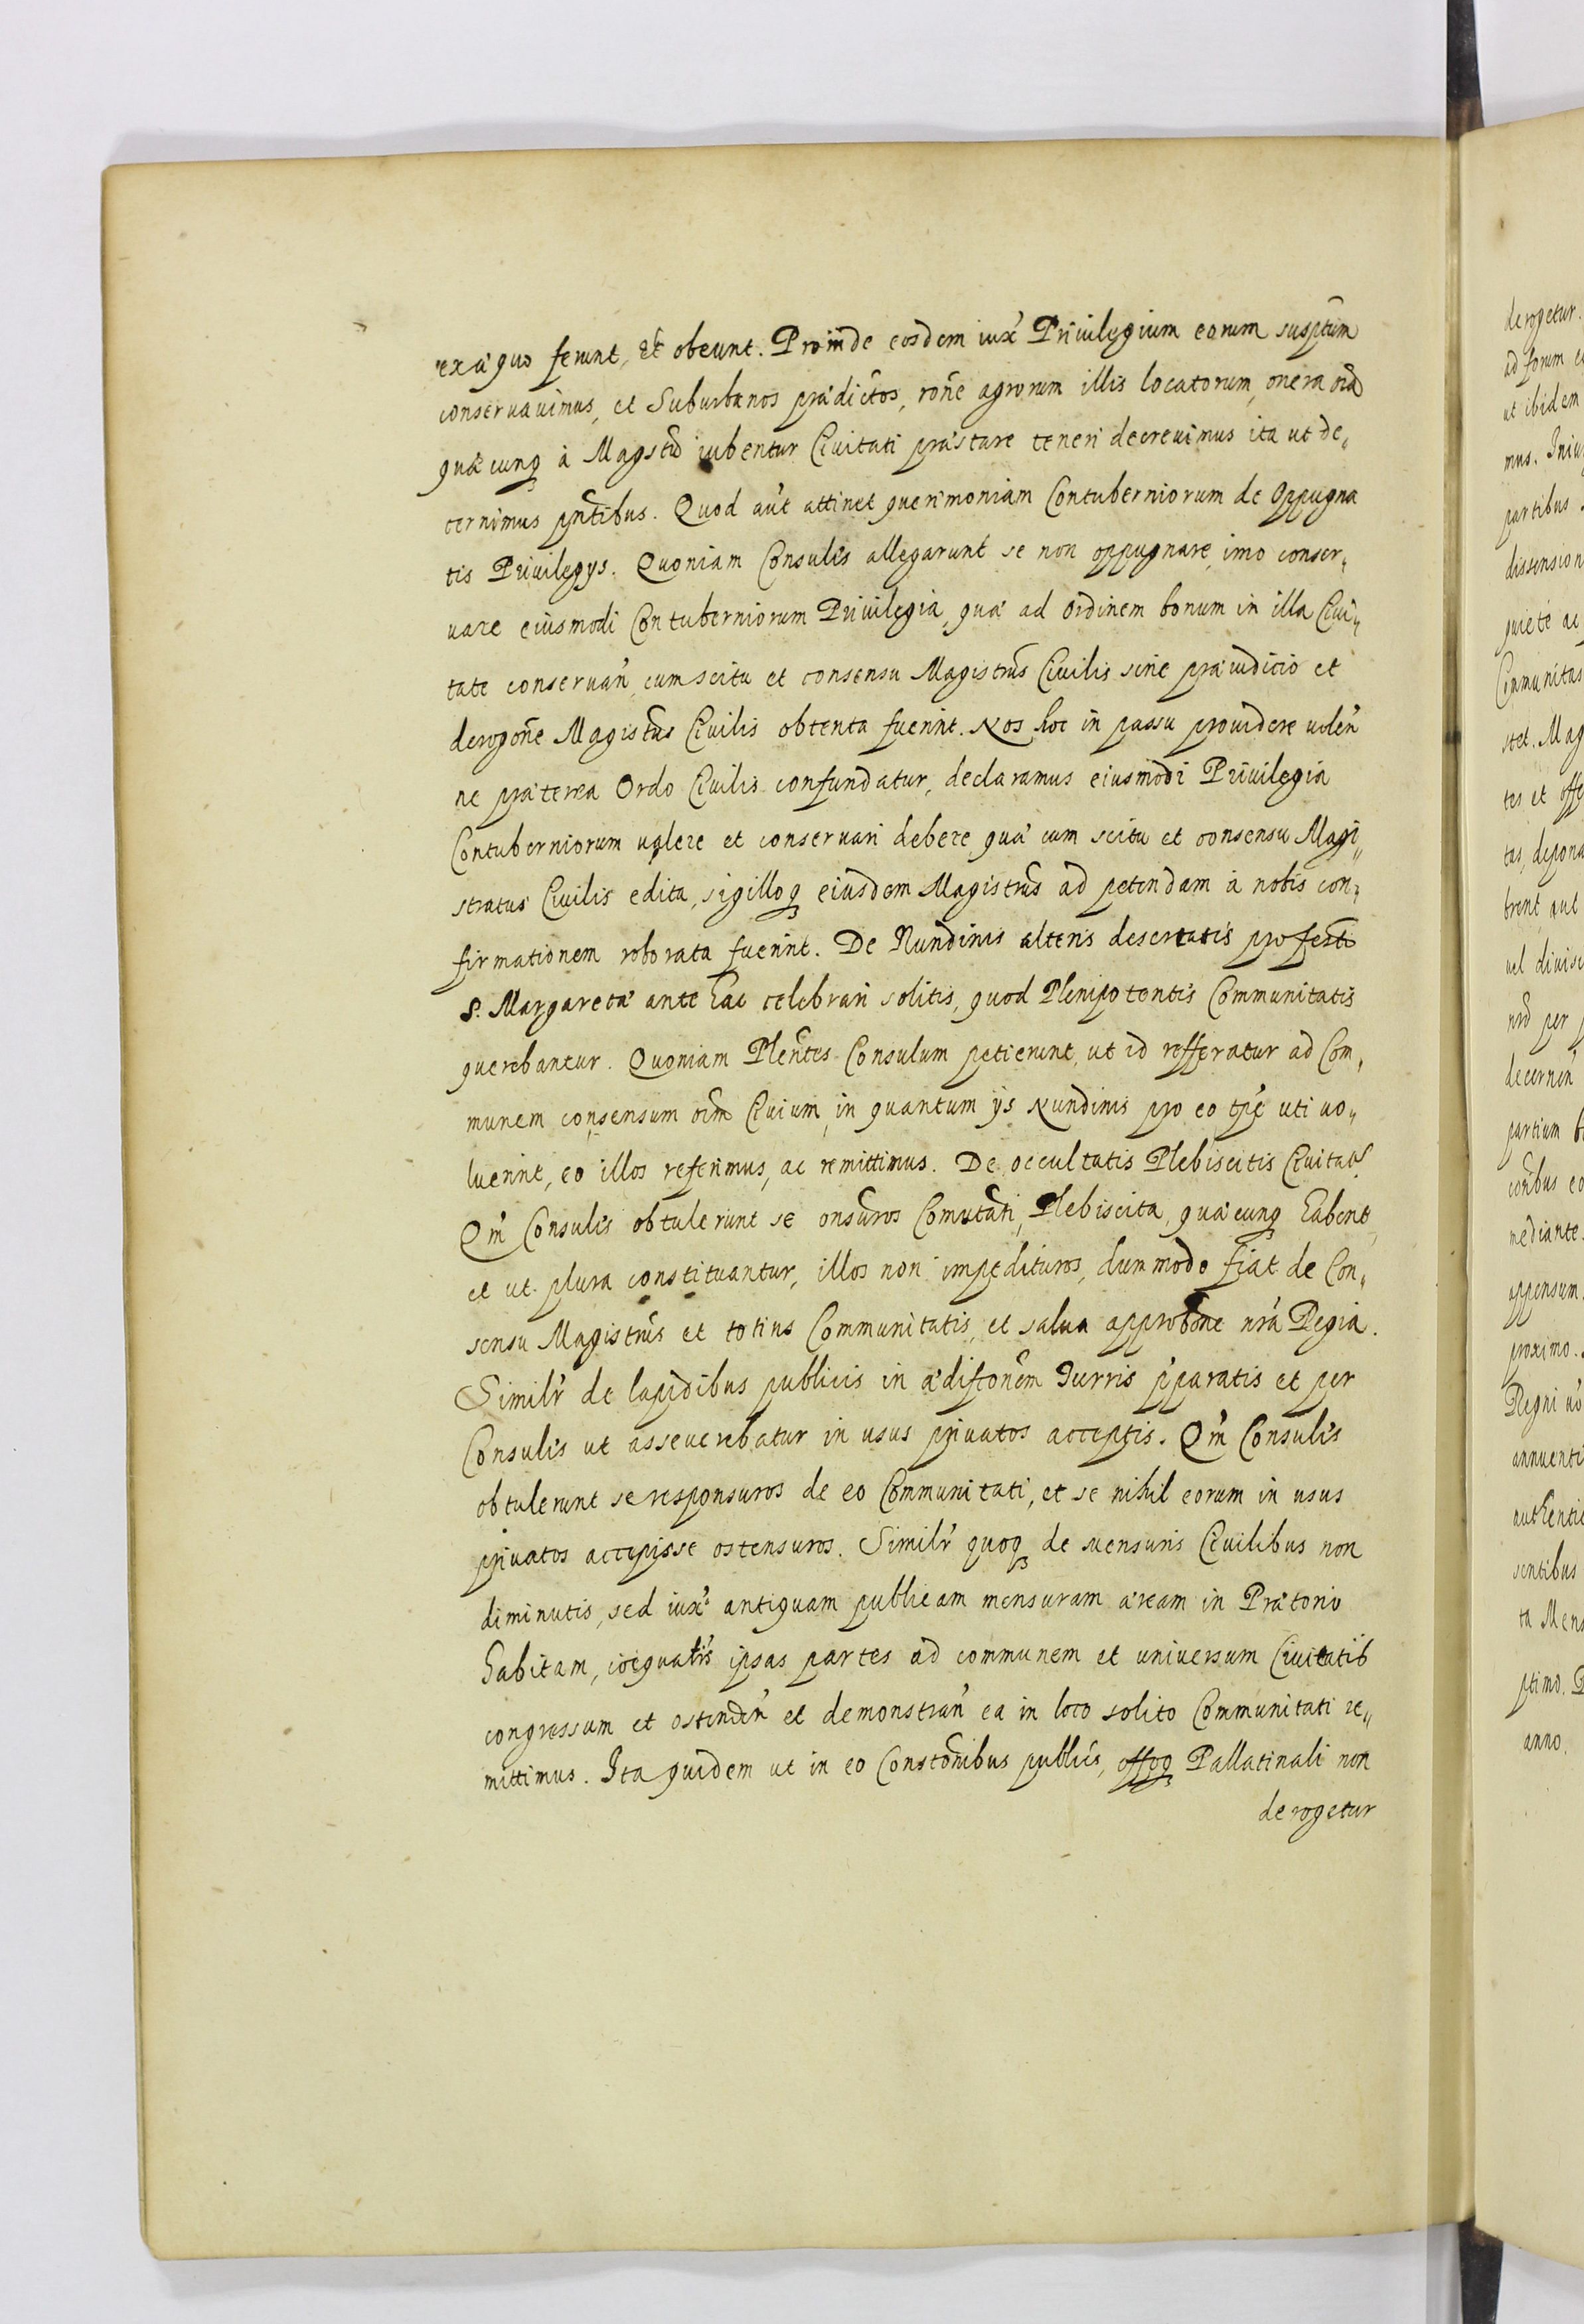 exæquo ferunt, et obeunt. Proinde eosdem iux̃ Priuilegium eorum susp̃tum
conseruauimus, et Suburbanos prædictos, rõne agrorum illis locatorum, onera oĩa
quæcunq à Magstũ iubentur Ciuitati præstare teneri decreuimus ita ut de„
cernimus pñtibus. Quod aũt attinet querimoniam Contuberniorum de Oppugna
tis Priuilegys. Quoniam Consules allegarunt se non oppugnare, imo conser„
uare eiusmodi Contuberniorum Priuilegia, quæ ad ordinem bonum in illa Ciui„
tate conseruañ, cum scitu et consensu Magistrũs Ciuilis sine præiudicio et
derogõne Magistrũs Ciuilis obtenta fuerint. Nos hoc in passu prouidere uoleñ
ne præterea Ordo Ciuilis confundatur, declaramus eiusmodi Priuilegia
Contuberniorum ualere et conseruari debere quæ cum scitu et consensu Magi„
stratus Ciuilis edita, sigilloq eiusdem Magistrũs ad petendam à nobis con„
firmationem roborata fuerint. De Nundinis alteris desertatis pro festo
S. Margaretæ ante hac celebrari solitis, quod Plenipotentes Communitatis
querebantur. Quoniam Pleñtes Consulum petierunt, ut id refferatur ad Com„
munem consensum oĩm Ciuium, in quantum ijs Nundinis pro eo tp̃e uti uo„
luerint, eo illos referimus, ac remittimus. De occultatis Plebiscitis Ciuitatis
Qm̃ Consules obtulerunt se onsuros Comutati, Plebiscita, quæcunq habent,
et ut plura constituantur, illos non impedituros, dummodo fiat de Con„
sensu Magistrũs et totius Communitatis, et salua approbõne nr̃a Regia.
Similr̃ de lapidibus publicis in ædifcõnem Turris p̃paratis et per
Consules ut asseuerebatur in usus priuatos acceptis. Qm̃ Consules
obtulerunt se responsuros de eo Communitati, et se nihil eorum in usus
priuatos accepisse ostensuros. Similr̃ quoq de mensuris Ciuilibus non
diminutis, sed iux̃ antiquam publicam mensuram æream in Prætorio
habitam, coequatis ipsas partes ad communem et uniuersum Ciuitatis
congressum et ostendeñ et demonstrañ ea in loco solito Communitati re„
mittimus. Ita quidem ut in eo Constõnibus publicis, offoq Pallatinali non
derogetur